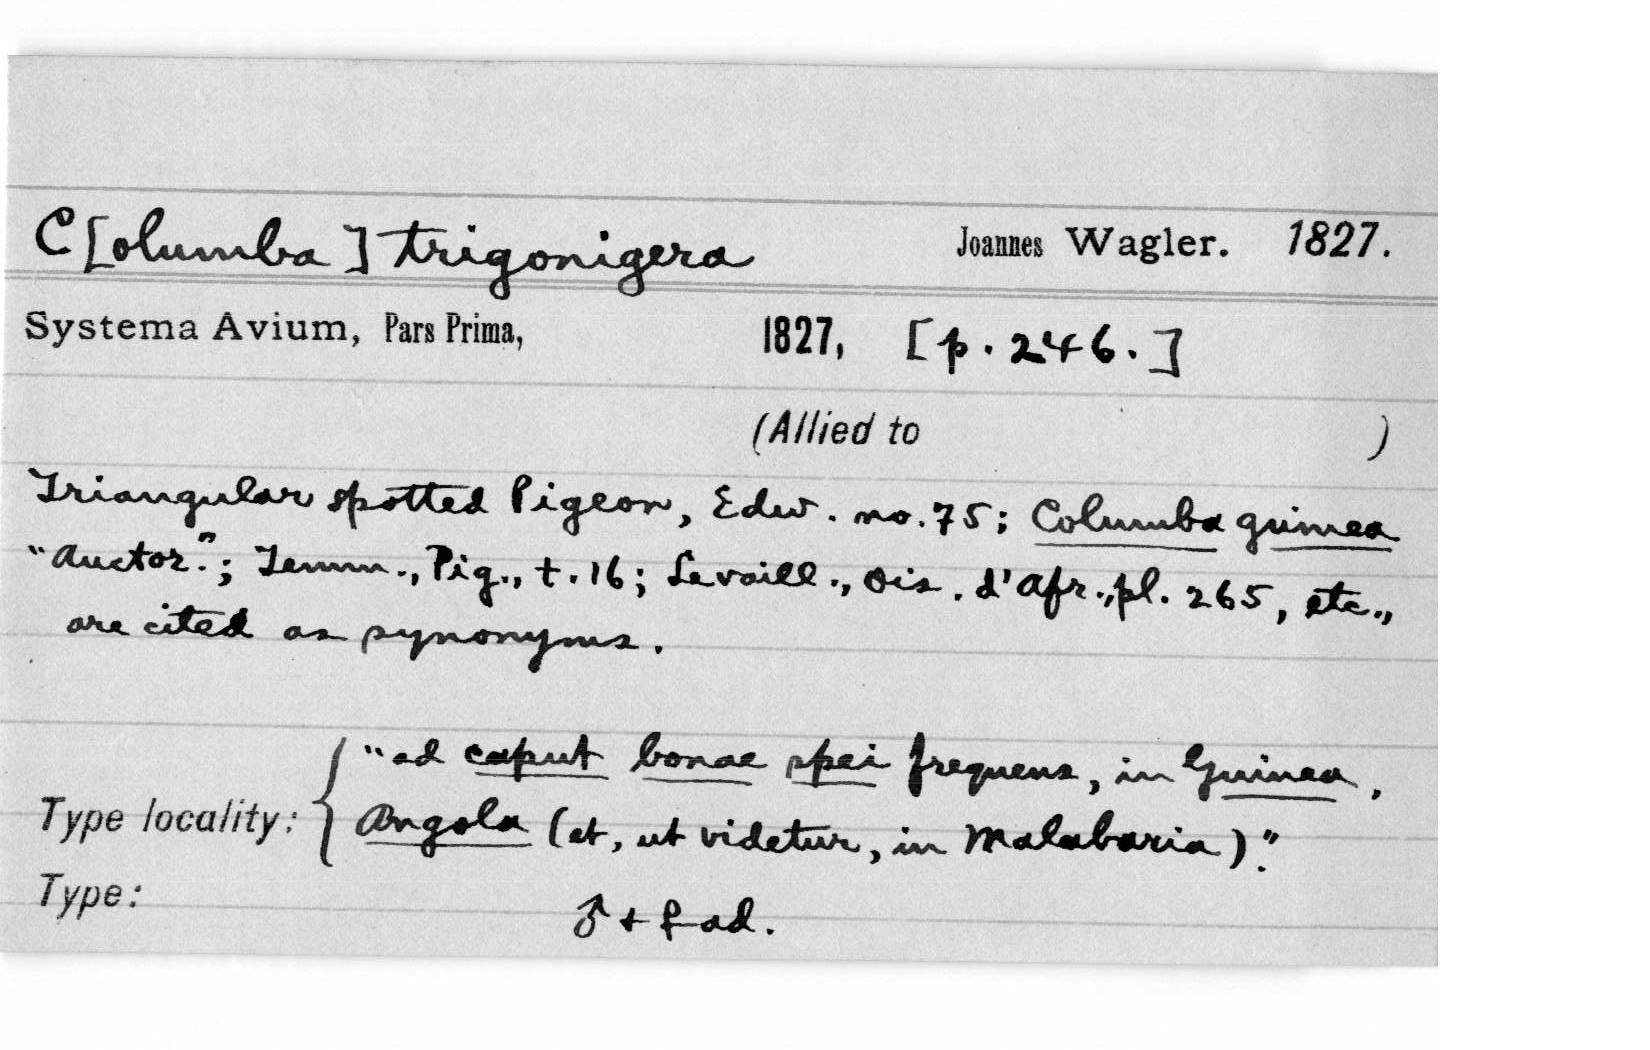 C[olumba] trigonigera Joannes Wagler. 1827.
Systema Avium, Pars Prima, 1827, [p. 246.]
(Allied to )
Triangular spotted Pigeon, Edw. no. 75; Columba guinea
"Auctor."; Temm., Pig., t. 16; Levaill., Ois. d'Afr., pl. 265, etc.,
are cited as synonyms.
Type locality: { "ad caput bonae spei frequens, in Guinea,
Angola (et, ut videtur, in Malabaria)."
Type: ♂ + ♀ ad.